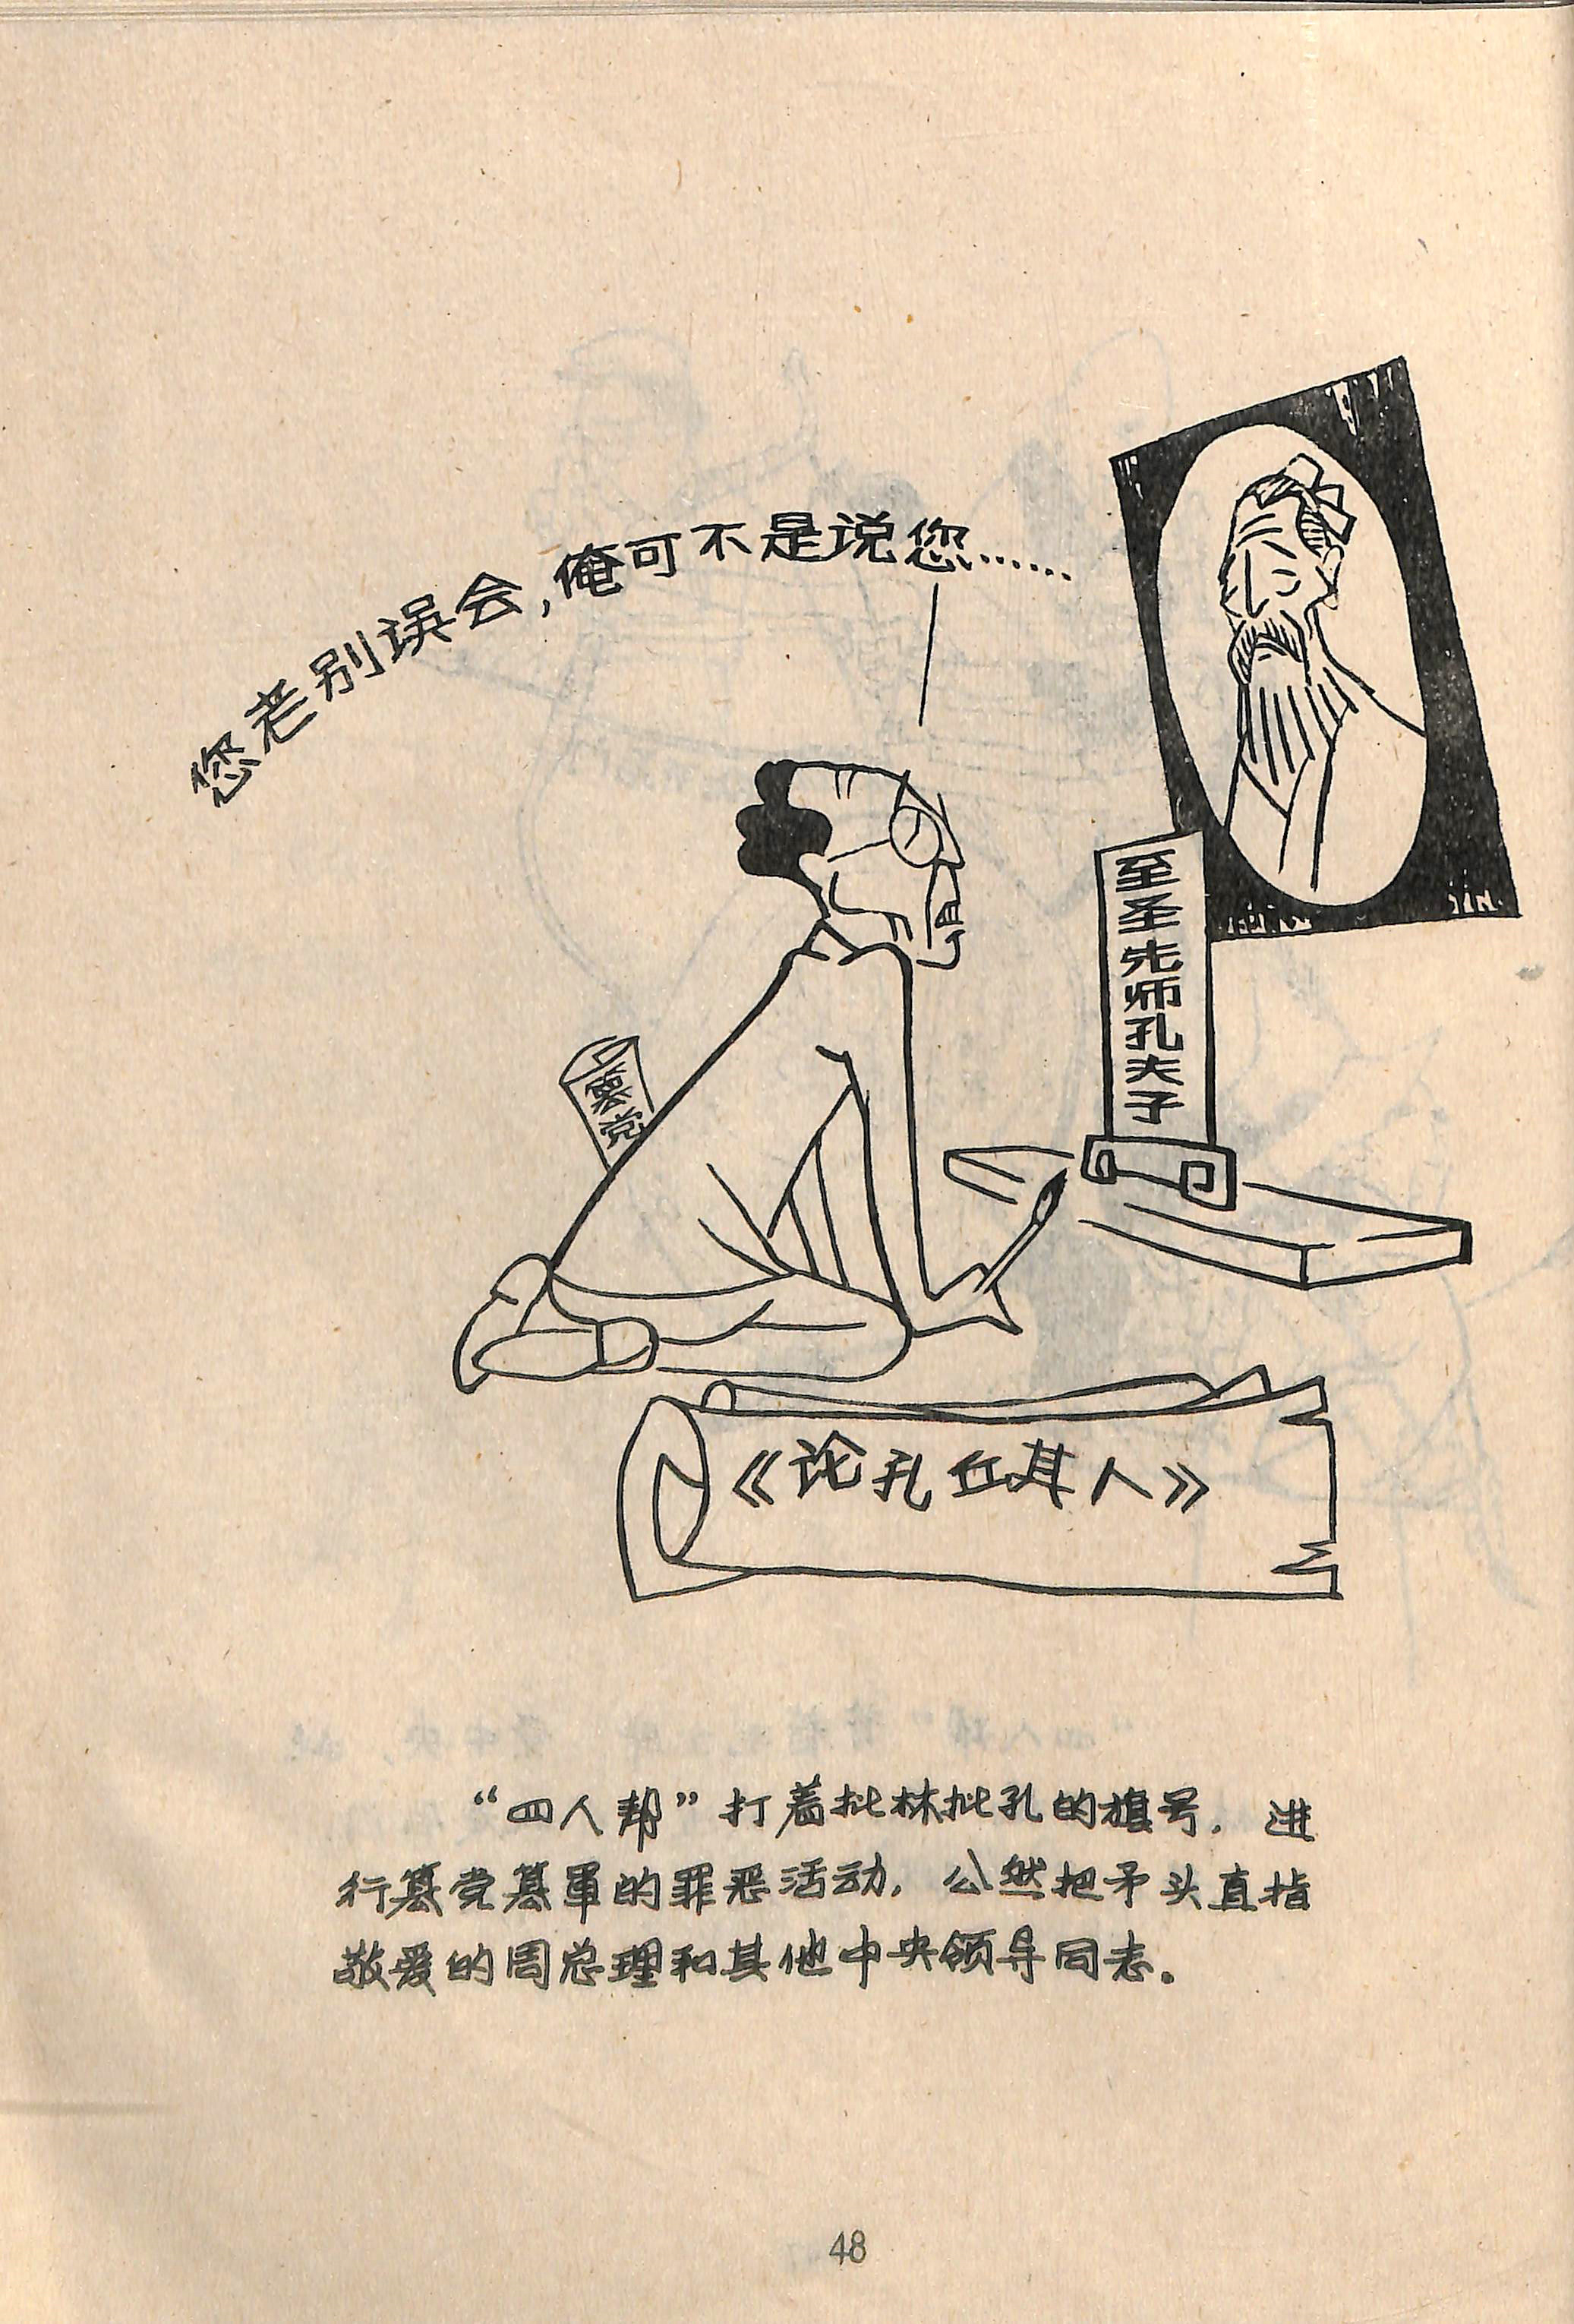 您老别误会,俺可不是说您……
至圣先师孔夫子
篡党
《论孔丘其人》
“四人帮”打着批林批孔的旗号，进
行篡党篡軍的罪恶活动，公然把矛头直指
敬爱的周总理和其他中央领导同志。
48